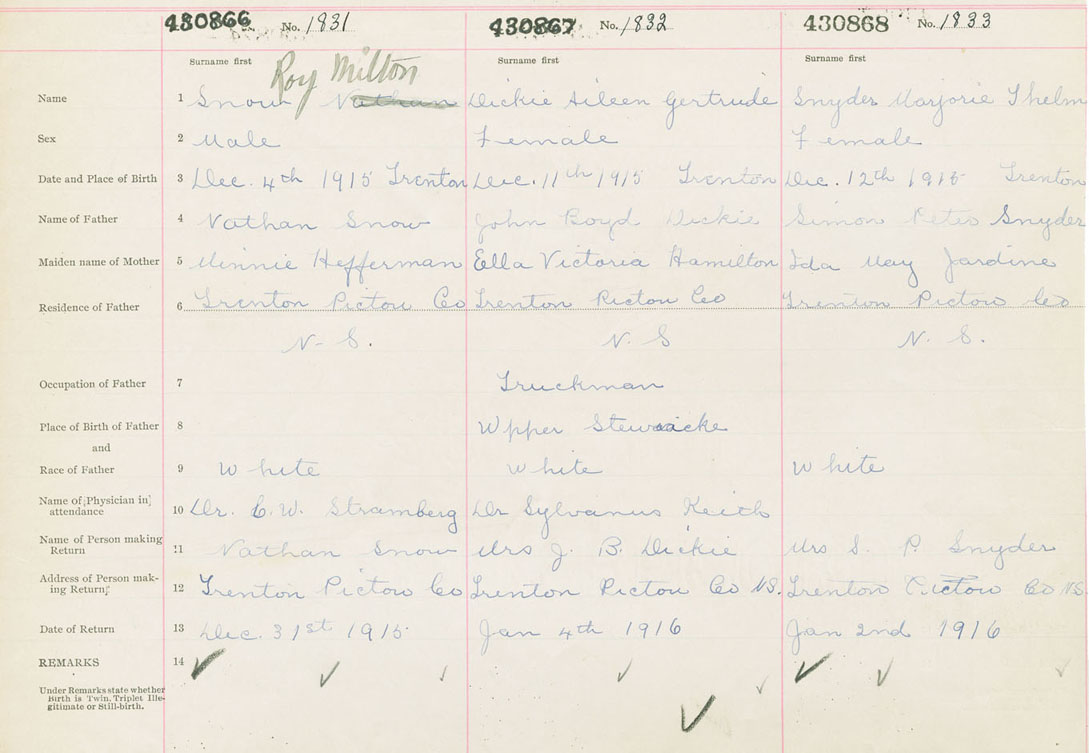 430866 No. 1831 430867 No. 1832 430868 No. 1833
Surname first Surname first Surname first
Roy Milton
Name 1 Snow Nathan Dickie Aileen Gertrude Snyder Marjorie Thelm
Sex 2 Male Female Female
Date and Place of Birth 3 Dec. 4th 1915 Trenton Dec. 11th 1915 Trenton Dec. 12th 1915 Trenton
Name of Father 4 Nathan Snow John Boyd Dickie Simon Peter Snyder
Maiden name of Mother 5 Minnie Hefferman Ella Victoria Hamilton Ida May Jardine
Residence of Father 6 Trenton Pictou Co Trenton Pictou Co Trenton Pictou Co
N. S. N. S N. S.
Occupation of Father 7 Truckman
Place of Birth of Father 8 Upper Stewiacke
and
Race of Father 9 White White White
Name of Physician in
attendance 10 Dr. C. W. Stramberg Dr Sylvanus Keith
Name of Person making
Return 11 Nathan Snow Mrs J. B. Dickie Mrs S. P. Snyder
Address of Person mak-
ing Return 12 Trenton Pictou Co Trenton Pictou Co N.S. Trenton Pictou Co N.S.
Date of Return 13 Dec. 31st 1915 Jan 4th 1916 Jan 2nd 1916
REMARKS 14
Under Remarks state whether
Birth is Twin, Triplet Ille-
gitimate or Still-birth.